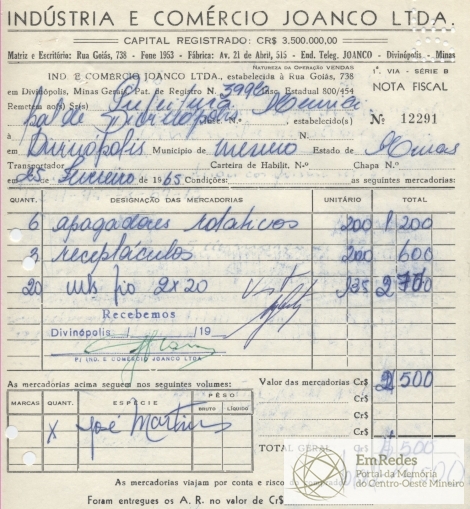 INDÚSTRIA E COMÉRCIO JOANCO LTDA.
CAPITAL REGISTRADO: CR$ 3.500.000,00
Matriz e Escritório: Rua Goiás, 738 - Fone 1953 - Fábrica: Av. 21 de Abril, 515 - End. Teleg. JOANCO - Divinópolis - Minas
NATUREZA DA OPERAÇÃO VENDAS
IND. E COMERCIO JOANCO LTDA., estabelecida à Rua Goiás, 738
1ª. VIA - SÉRIE B
em Divinópolis, Minas Gerais, Pat. de Registro N. 3996 Insc. Estadual 800/454
NOTA FISCAL
Remetem ao(s) Sr(s) Prefeitura Munici
pal de Divinópolis N. , estabelecido(s)
Nº 12291
à
em Divinópolis Município de mesmo Estado de Minas
Transportador Carteira de Habilit. N.º Chapa N.º
em 25 de Fevereiro de 1965 Condições: as seguintes mercadorias:
QUANT. DESIGNAÇÃO DAS MERCADORIAS UNITÁRIO TOTAL
6 apagadores rotativos 200 1 200
3 receptáculos 200 600
20 mts fio 2x20 135 2 700
Recebemos
Divinópolis / /19
P/ IND. E COMÉRCIO JOANCO LTDA
As mercadorias acima seguem nos seguintes volumes:
Valor das mercadorias Cr$ 500
MARCAS QUANT. ESPÉCIE PÊSO
BRUTO LÍQUIDO
Cr$
Cr$
X José Martins
Cr$
TOTAL GERAL 500
As mercadorias viajam por conta e risco
Foram entregues os A. R. no valor de Cr$
EmRedes
Portal da Memória
do Centro-Oeste Mineiro